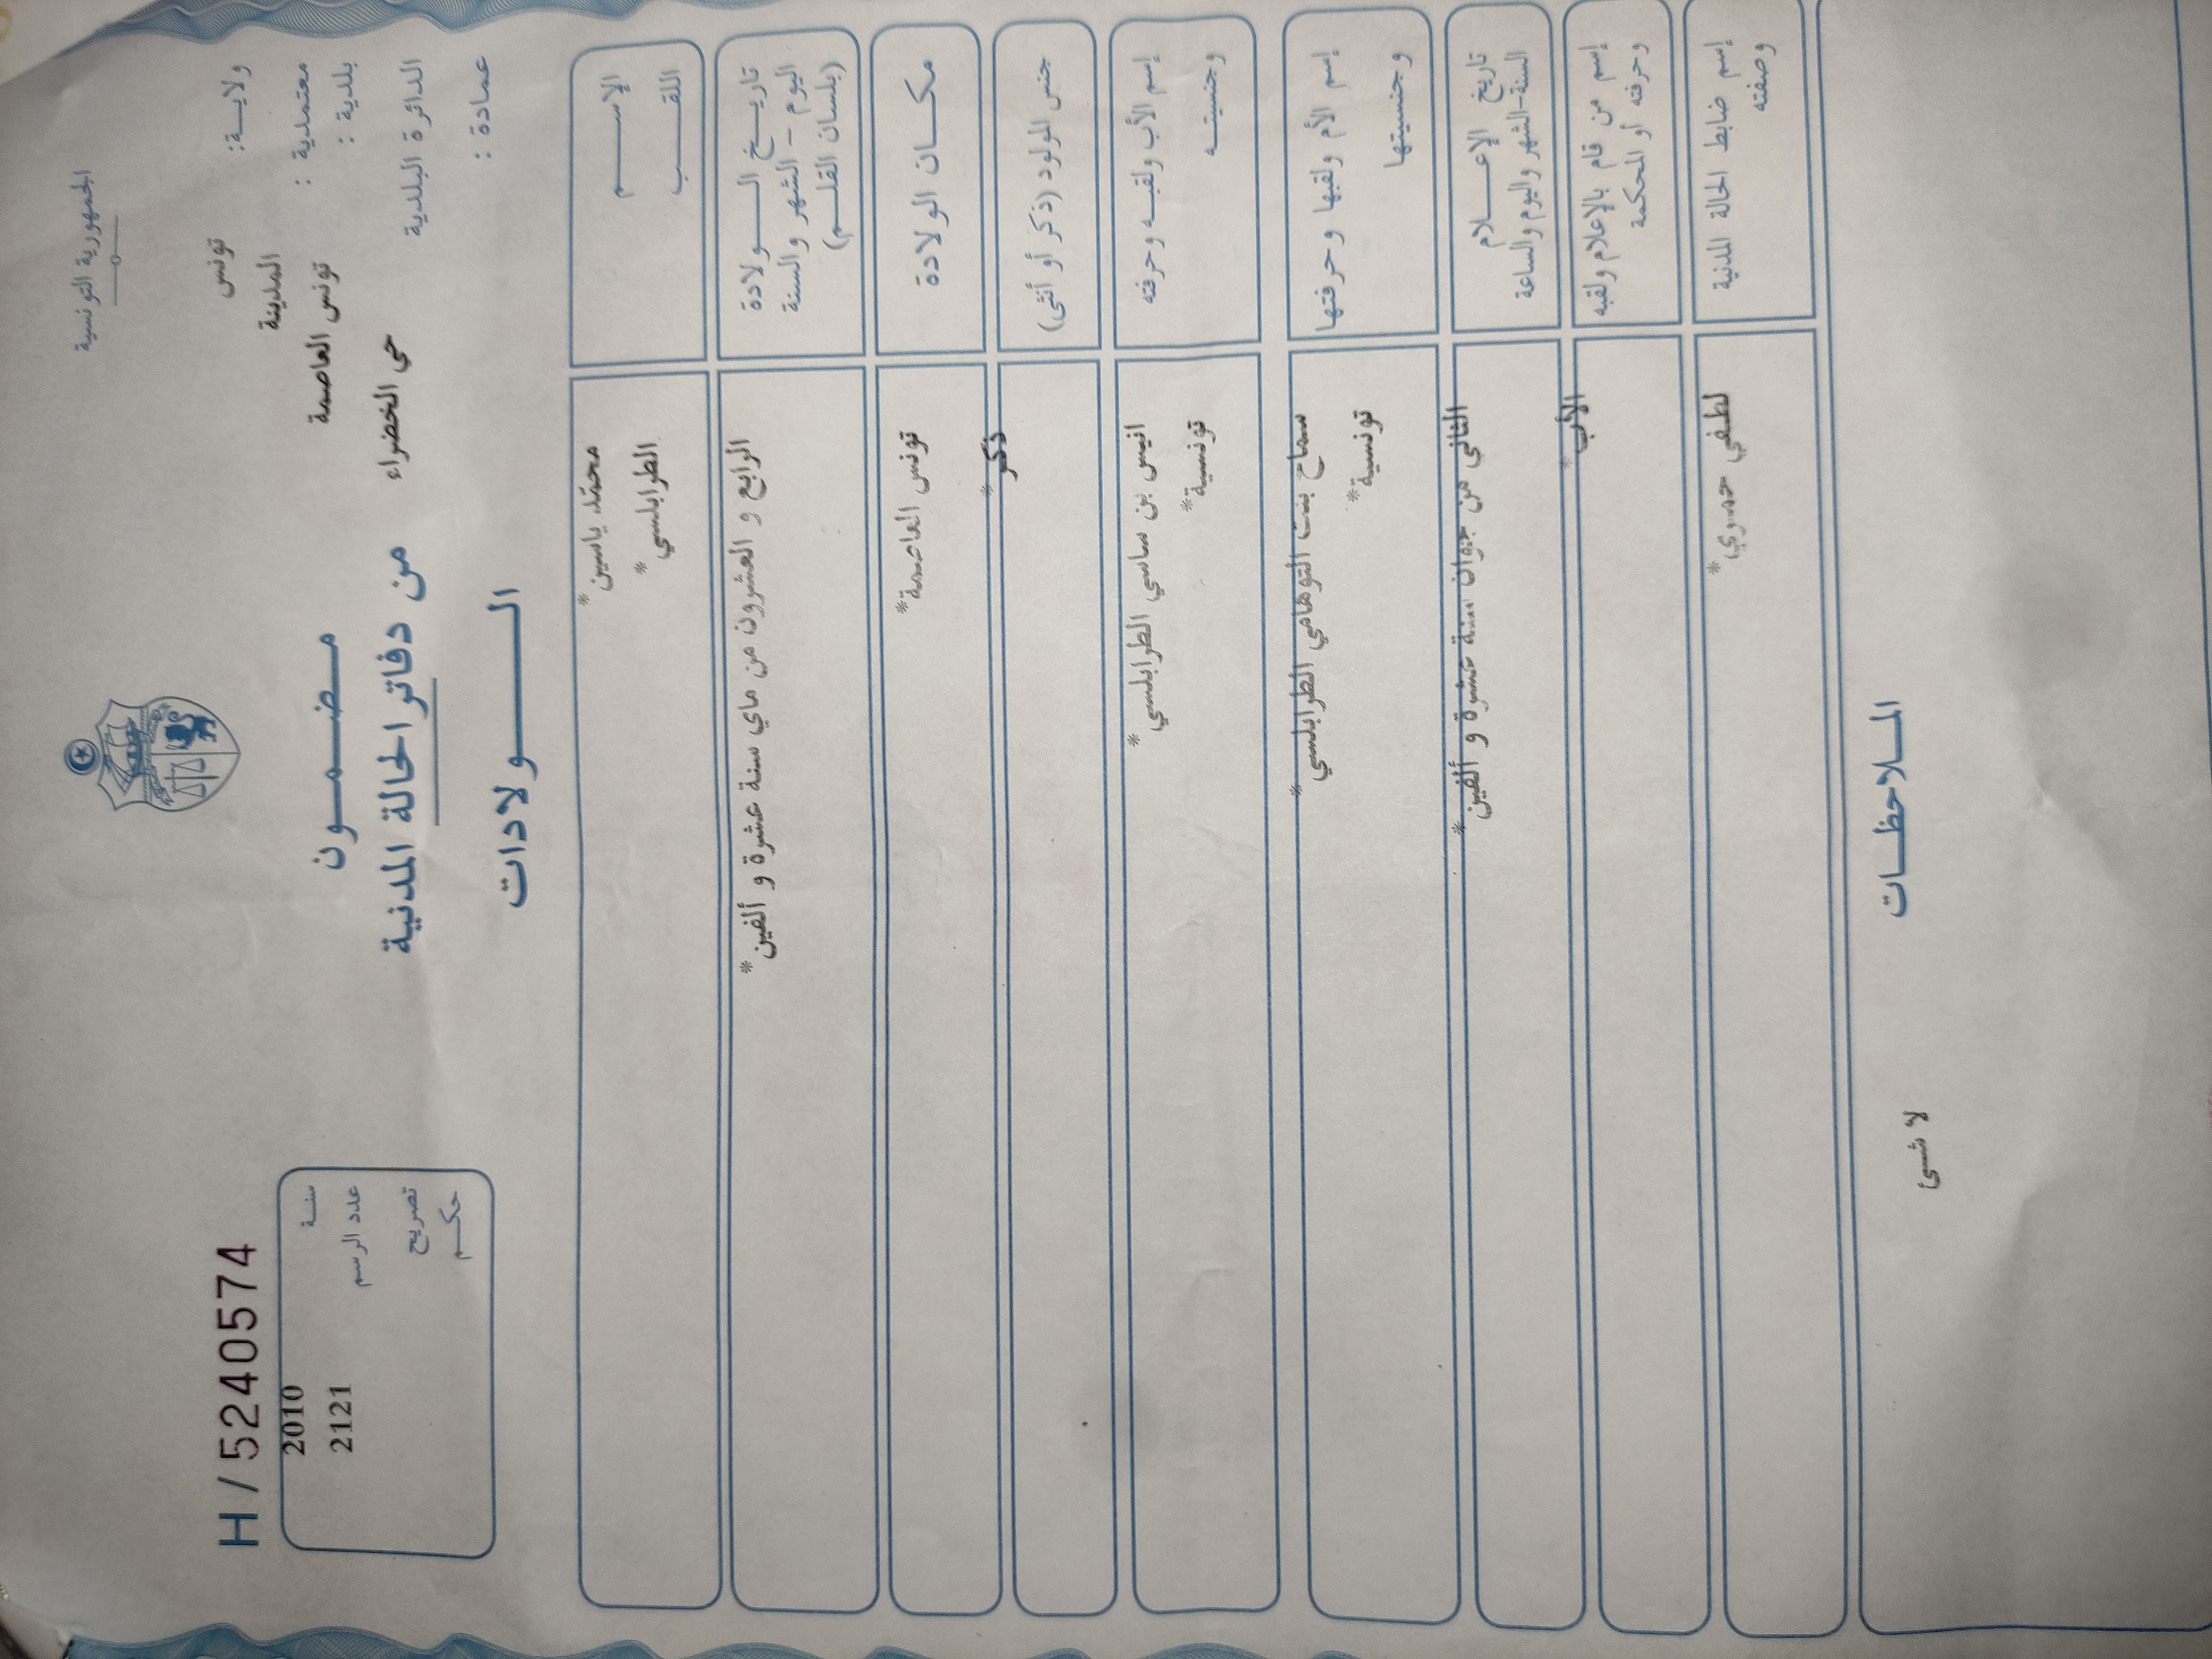 الجمهورية التونسية
ولايـــة: تونس
المدينة
معتمدية :
بلدية : تونس العاصمة
الدائرة البلدية حي الخضراء
عمادة :
H / 5240574
سنـة 2010
عدد الرسم 2121
تصريح
حكـــم
مـضـمـــون
من دفاتر الحالة المدنية
الـــــولادات
الإســــم محمّد ياسين*
اللقـــب الطرابلسي*
تاريـــخ الــــولادة
اليوم - الشهر والسنة
(بلسان القلـــم)
الرابع و العشرون من ماي سنة عشرة و ألفين*
مكـــان الولادة
تونس العاصمة*
جنس المولود (ذكر أو أنثى)
ذكر*
إسم الأب ولقبـه وحرفته
وجنسيتــه
انيس بن ساسي الطرابلسي*
تونسية*
إسم الأم ولقبها وحرفتها
وجنسيتها
سماح بنت التوهامي الطرابلسي*
تونسية*
تاريخ الإعـــــلام
السنة-الشهر واليوم والساعة
الثاني من جوان سنة عشرة و ألفين*
إسم من قام بالإعلام ولقبه
وحرفته أو المحكمة
الأب*
إسم ضابط الحالة المدنية
وصفته
لطفي حمدي*
المـــلاحظـــات
لا شئ